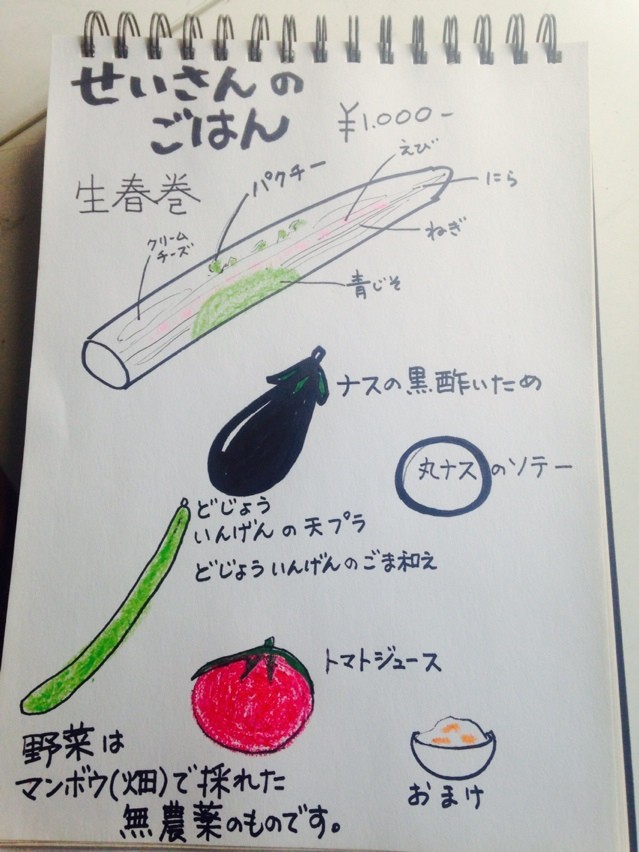 せいさんの
ごはん
¥1.000-
生春巻
パクチー
えび
にら
ねぎ
クリーム
チーズ
青じそ
ナスの黒酢いため
丸ナスのソテー
どじょう
いんげんの天プラ
どじょういんげんのごま和え
トマトジュース
野菜は
マンボウ(畑)で採れた
無農薬のものです。
おまけ